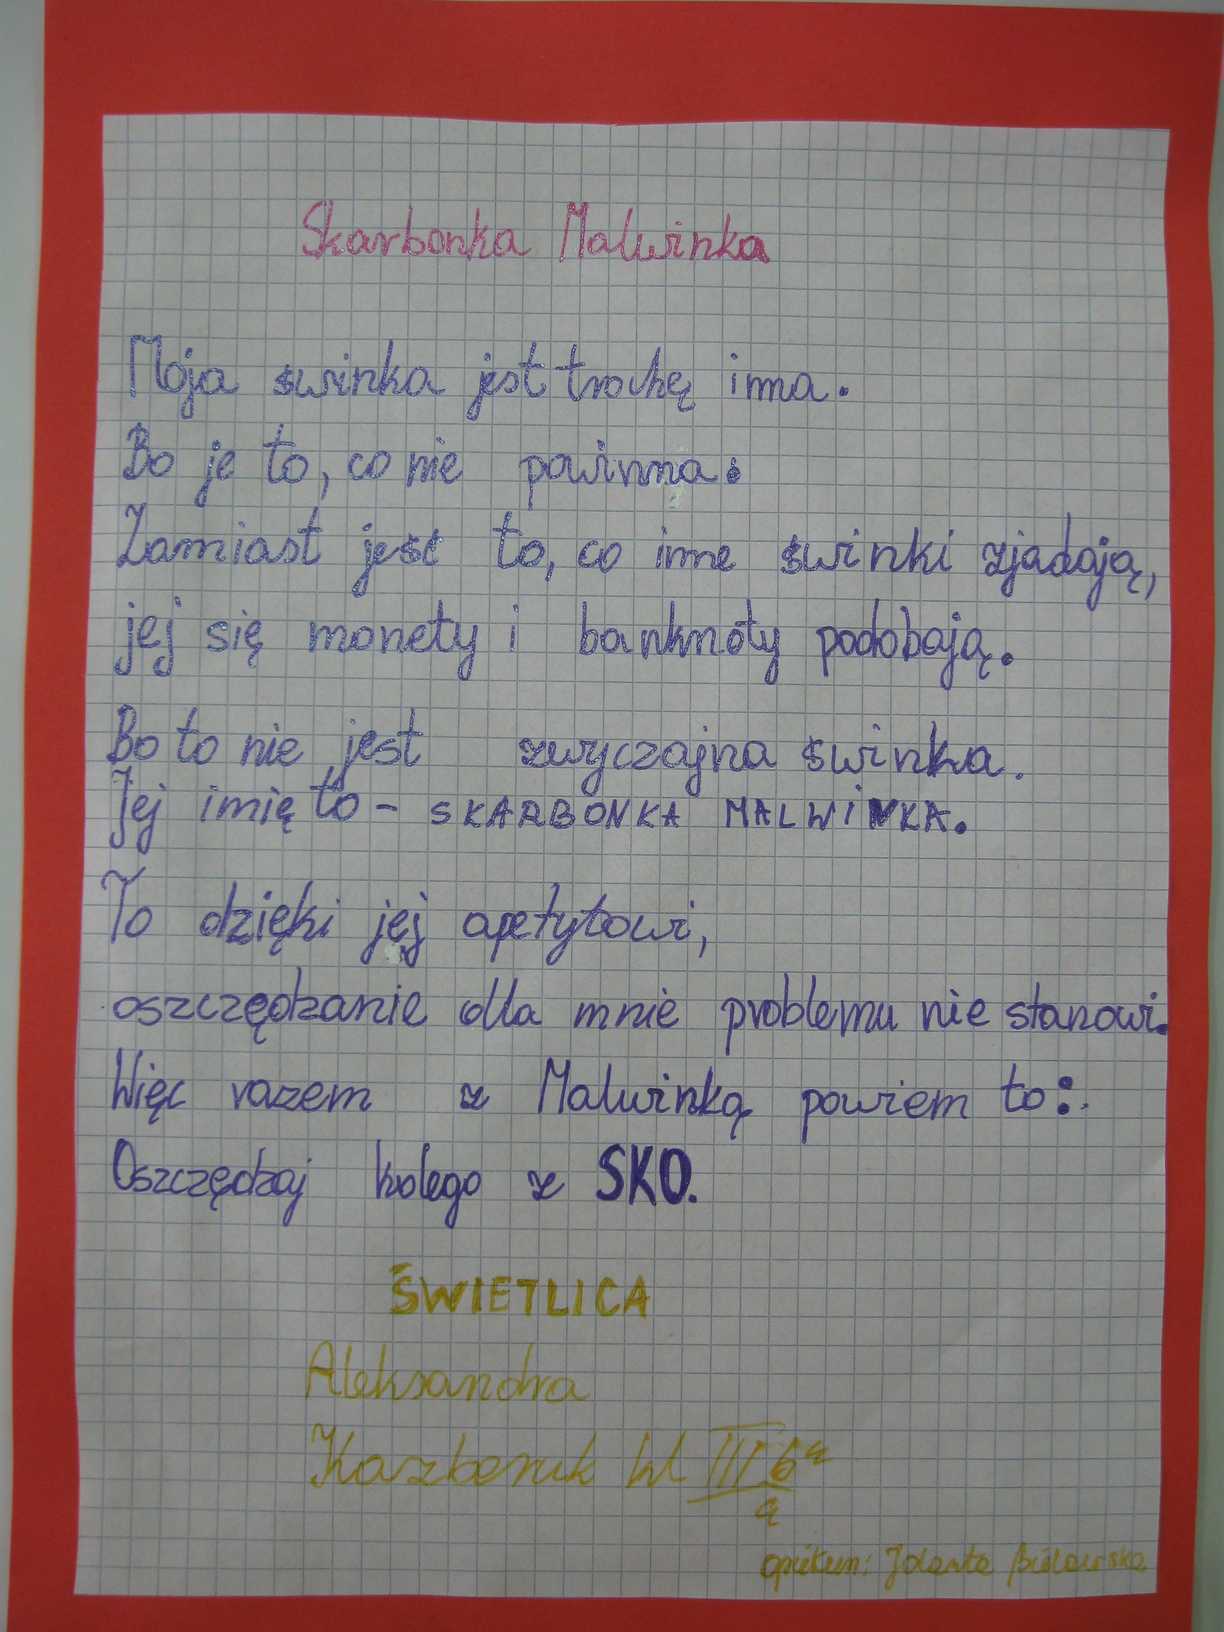 Skarbonka Malwinka
Moja świnka jest trochę inna.
Bo je to, co nie powinna.
Zamiast jeść to, co inne świnki zjadają,
jej się monety i banknoty podobają.
Bo to nie jest zwyczajna świnka.
Jej imię to - SKARBONKA MALWINKA.
To dzięki jej apetytowi,
oszczędzanie dla mnie problemu nie stanowi.
Więc razem z Malwinką powiem to:
Oszczędzaj kolego z SKO.
ŚWIETLICA
Aleksandra
kl III
opiekun: Jolanta